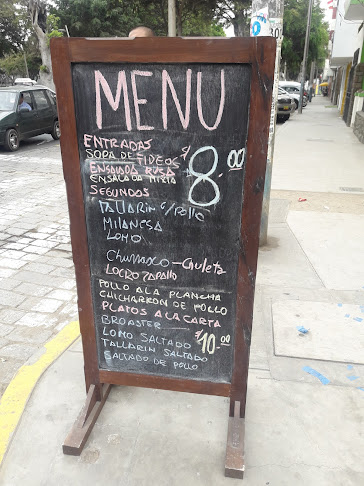 MENU
ENTRADAS
SOPA DE FIDEOS S/ 8.00
ENSALADA RUSA
ENSALADA MIXTA
SEGUNDOS
TALLARIN C/POLLO
MILANESA
LOMO
CHURRASCO-Chuleta
LOCRO ZAPALLO
POLLO A LA PLANCHA
CHICHARRON DE POLLO
PLATOS A LA CARTA
BROASTER S/ 10.00
LOMO SALTADO
TALLARIN SALTADO
SALTADO DE POLLO